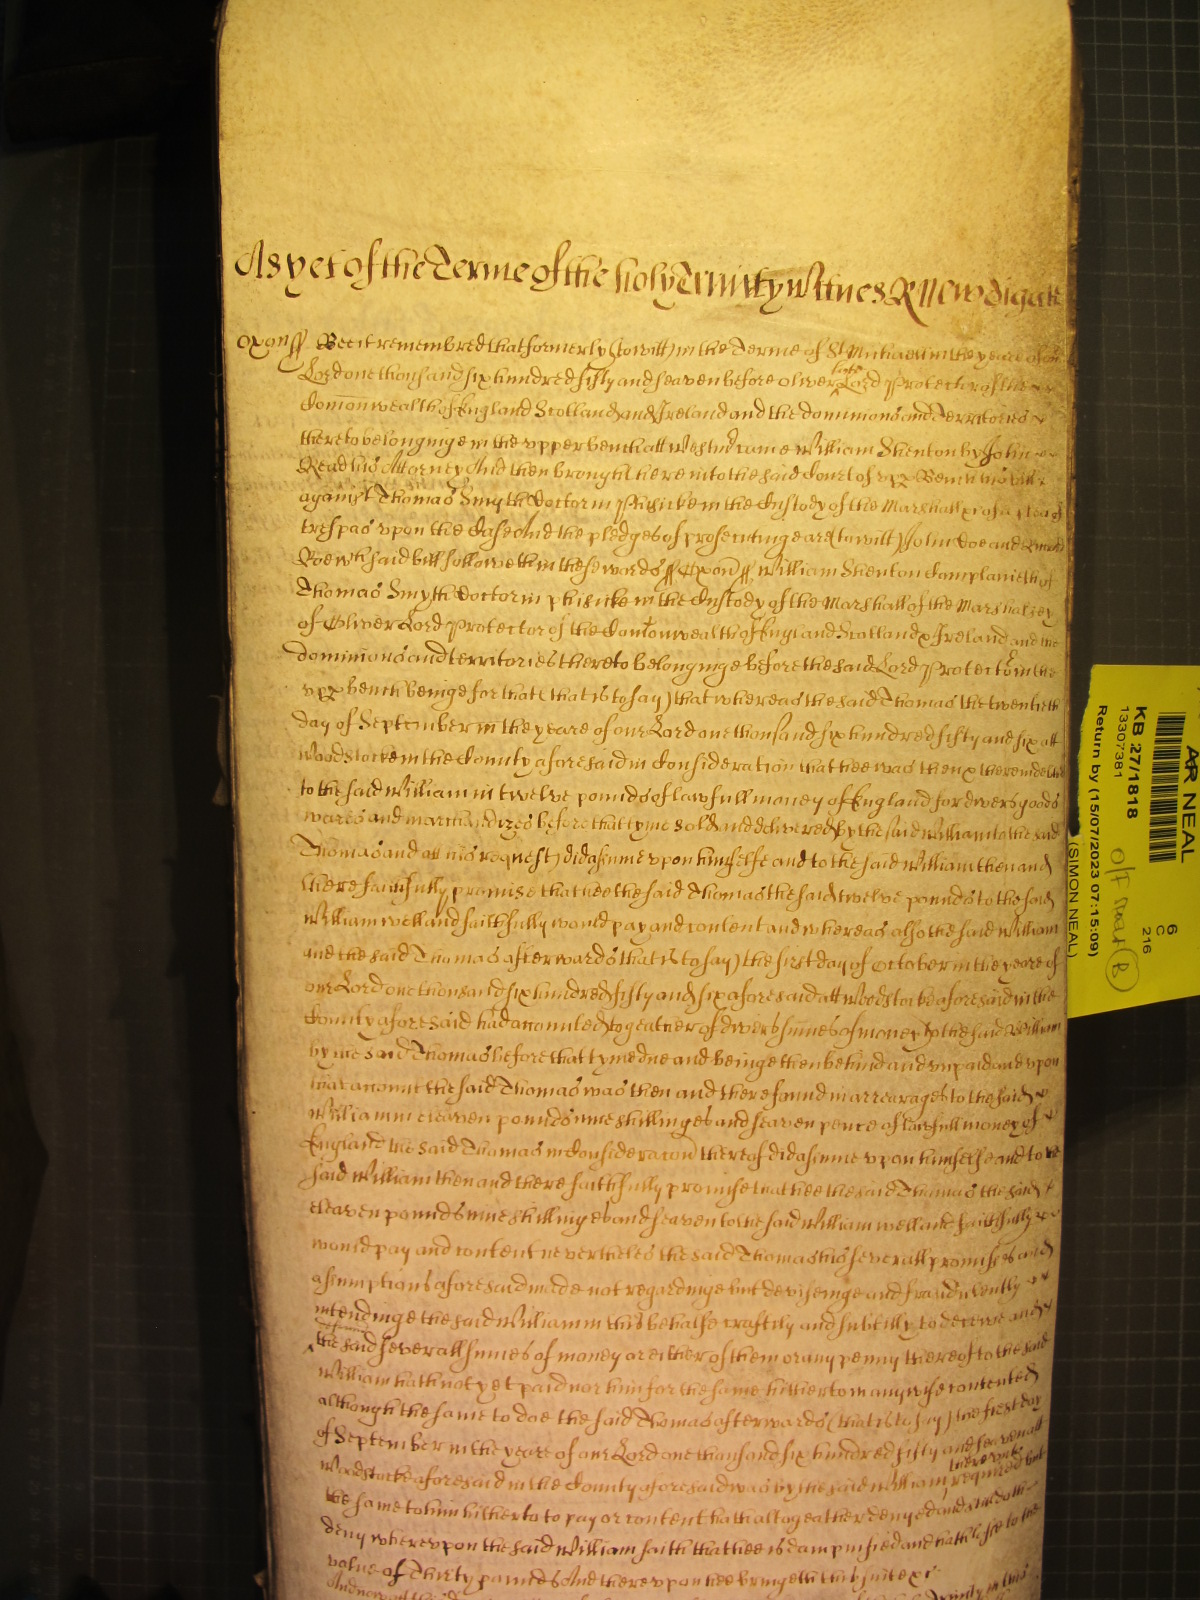 As yet of the Terme of the holy Trinity Witnes R Newdigate
Oxon ss Bee it remembred that formerly (to witt) in the Terme of St Michaell in the yeare of our
Lord one thousand six hundred fifty and seaven before Oliver late Lord Protector of the
Comonwealth of England Scotland and Ireland and the dominions and Territories
thereto belonginge in the upper bench att Westmr came William Shenton by John
Read his Attorney And then brought here into the said Court of upp Bench his bill
against Thomas Smyth Doctor in Phisicke in the Custody of the Marshall &c of a plea of
trespas upon the Case And the pledges of prosecutinge are (to witt) John Doe and Richard
Roe wch said bill followeth in these words ss Oxon ss William Shenton Complaineth of
Thomas Smyth Doctor in phisicke in the Custody of the Marshall of the Marshalsey
of Oliver Lord Protector of the Comonwealth of England Scotland & Ireland and the
dominions and territories thereto belonginge before the said Lord Protector in the
upp bench beinge for that (that is to say) that whereas the said Thomas the twentieth
day of September in the yeare of our Lord one thousand six hundred fifty and six att
Woodstocke in the County aforesaid in Consideration that hee was then & there indebted
to the said William in twelve pounds of lawfull money of England for divers goods
wares and marchandizes before that tyme sold and delivered by the said William to the said
Thomas and att his request) did assume upon himselfe and to the said William then and
there faithfully promise that hee the said Thomas the said twelve pounds to the said
William well and faithfully would pay and content and whereas also the said William
and the said Thomas afterwards (that is to say) the first day of October in the yeare of
our Lord one thousand six hundred fifty and six aforesaid att Woodstocke aforesaid in the
County aforesaid had accompted togeather of divers summes of money to the said William
by the said Thomas before that tyme due and beinge then behind and unpaid and upon
that account the said Thomas was then and there found in arrearages to the said
William in eleaven pounds nine shillinges and seaven pence of lawfull money of
England the said Thomas in Consideracon thereof did assume upon himselfe and to the
said William then and there faithfully promise that hee the said Thomas the said
eleaven pounds nine shillinges and seaven to the said William well and faithfully
would pay and content nevertheles the said Thomas his severall promises and
assumptions aforesaid made not regardinge but deviseinge and fraudulently
intendinge the said William in this behalfe craftily and subtilly to deceive and
the said severall summes of money or either of them or any penny thereof to the said
William hath not yet paid nor him for the same hitherto in any wise contented
although the same to doe the said Thomas afterwards (that is to say) the first day
of September in the yeare of our Lord one thousand six hundred fifty and seaven att
Woodstocke aforesaid in the County aforesaid was by the said William thereunto required but
the same to him hitherto to pay or content hath altogeather denyed and still doth
deny whereupon the said William saith that hee is dampnified and hath losse to the
value of Thirty pounds And thereupon hee bringeth this suite &c
AR NEAL
KB 27/1818
13307381
Return by (15/07/2023 07:15:09)
(SIMON NEAL)
6
C
216
B